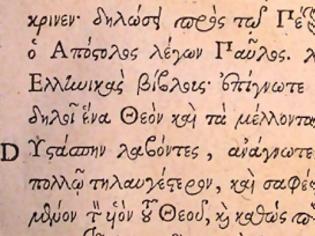 κρινεν· δηλώσει πρὸς τῷ Πέ
ὁ Ἀπόστολος λέγων Παῦλος. λ
Ἑλληνικὰς βίβλοις· ἐπίγνωτε
δηλοῖ ἕνα Θεὸν καὶ τὰ μέλλοντα
D Ὑστάσπην λαβόντες, ἀνάγνωτε
πολλῷ τηλαυγέστερον, καὶ σαφέσ
τὸν υἱὸν τοῦ Θεοῦ, καὶ καθὼς